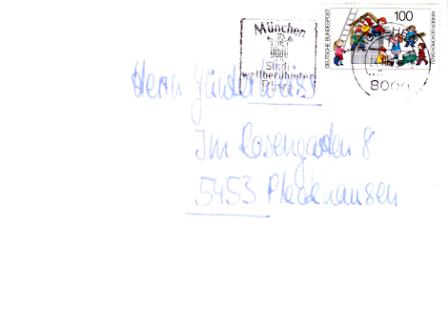 München
Stadt
weltberühmter
DEUTSCHE BUNDESPOST
100
MÜNCHEN
8000
Herrn Günter Weiss
Im Rosengarten 8
5453 Pleckhausen